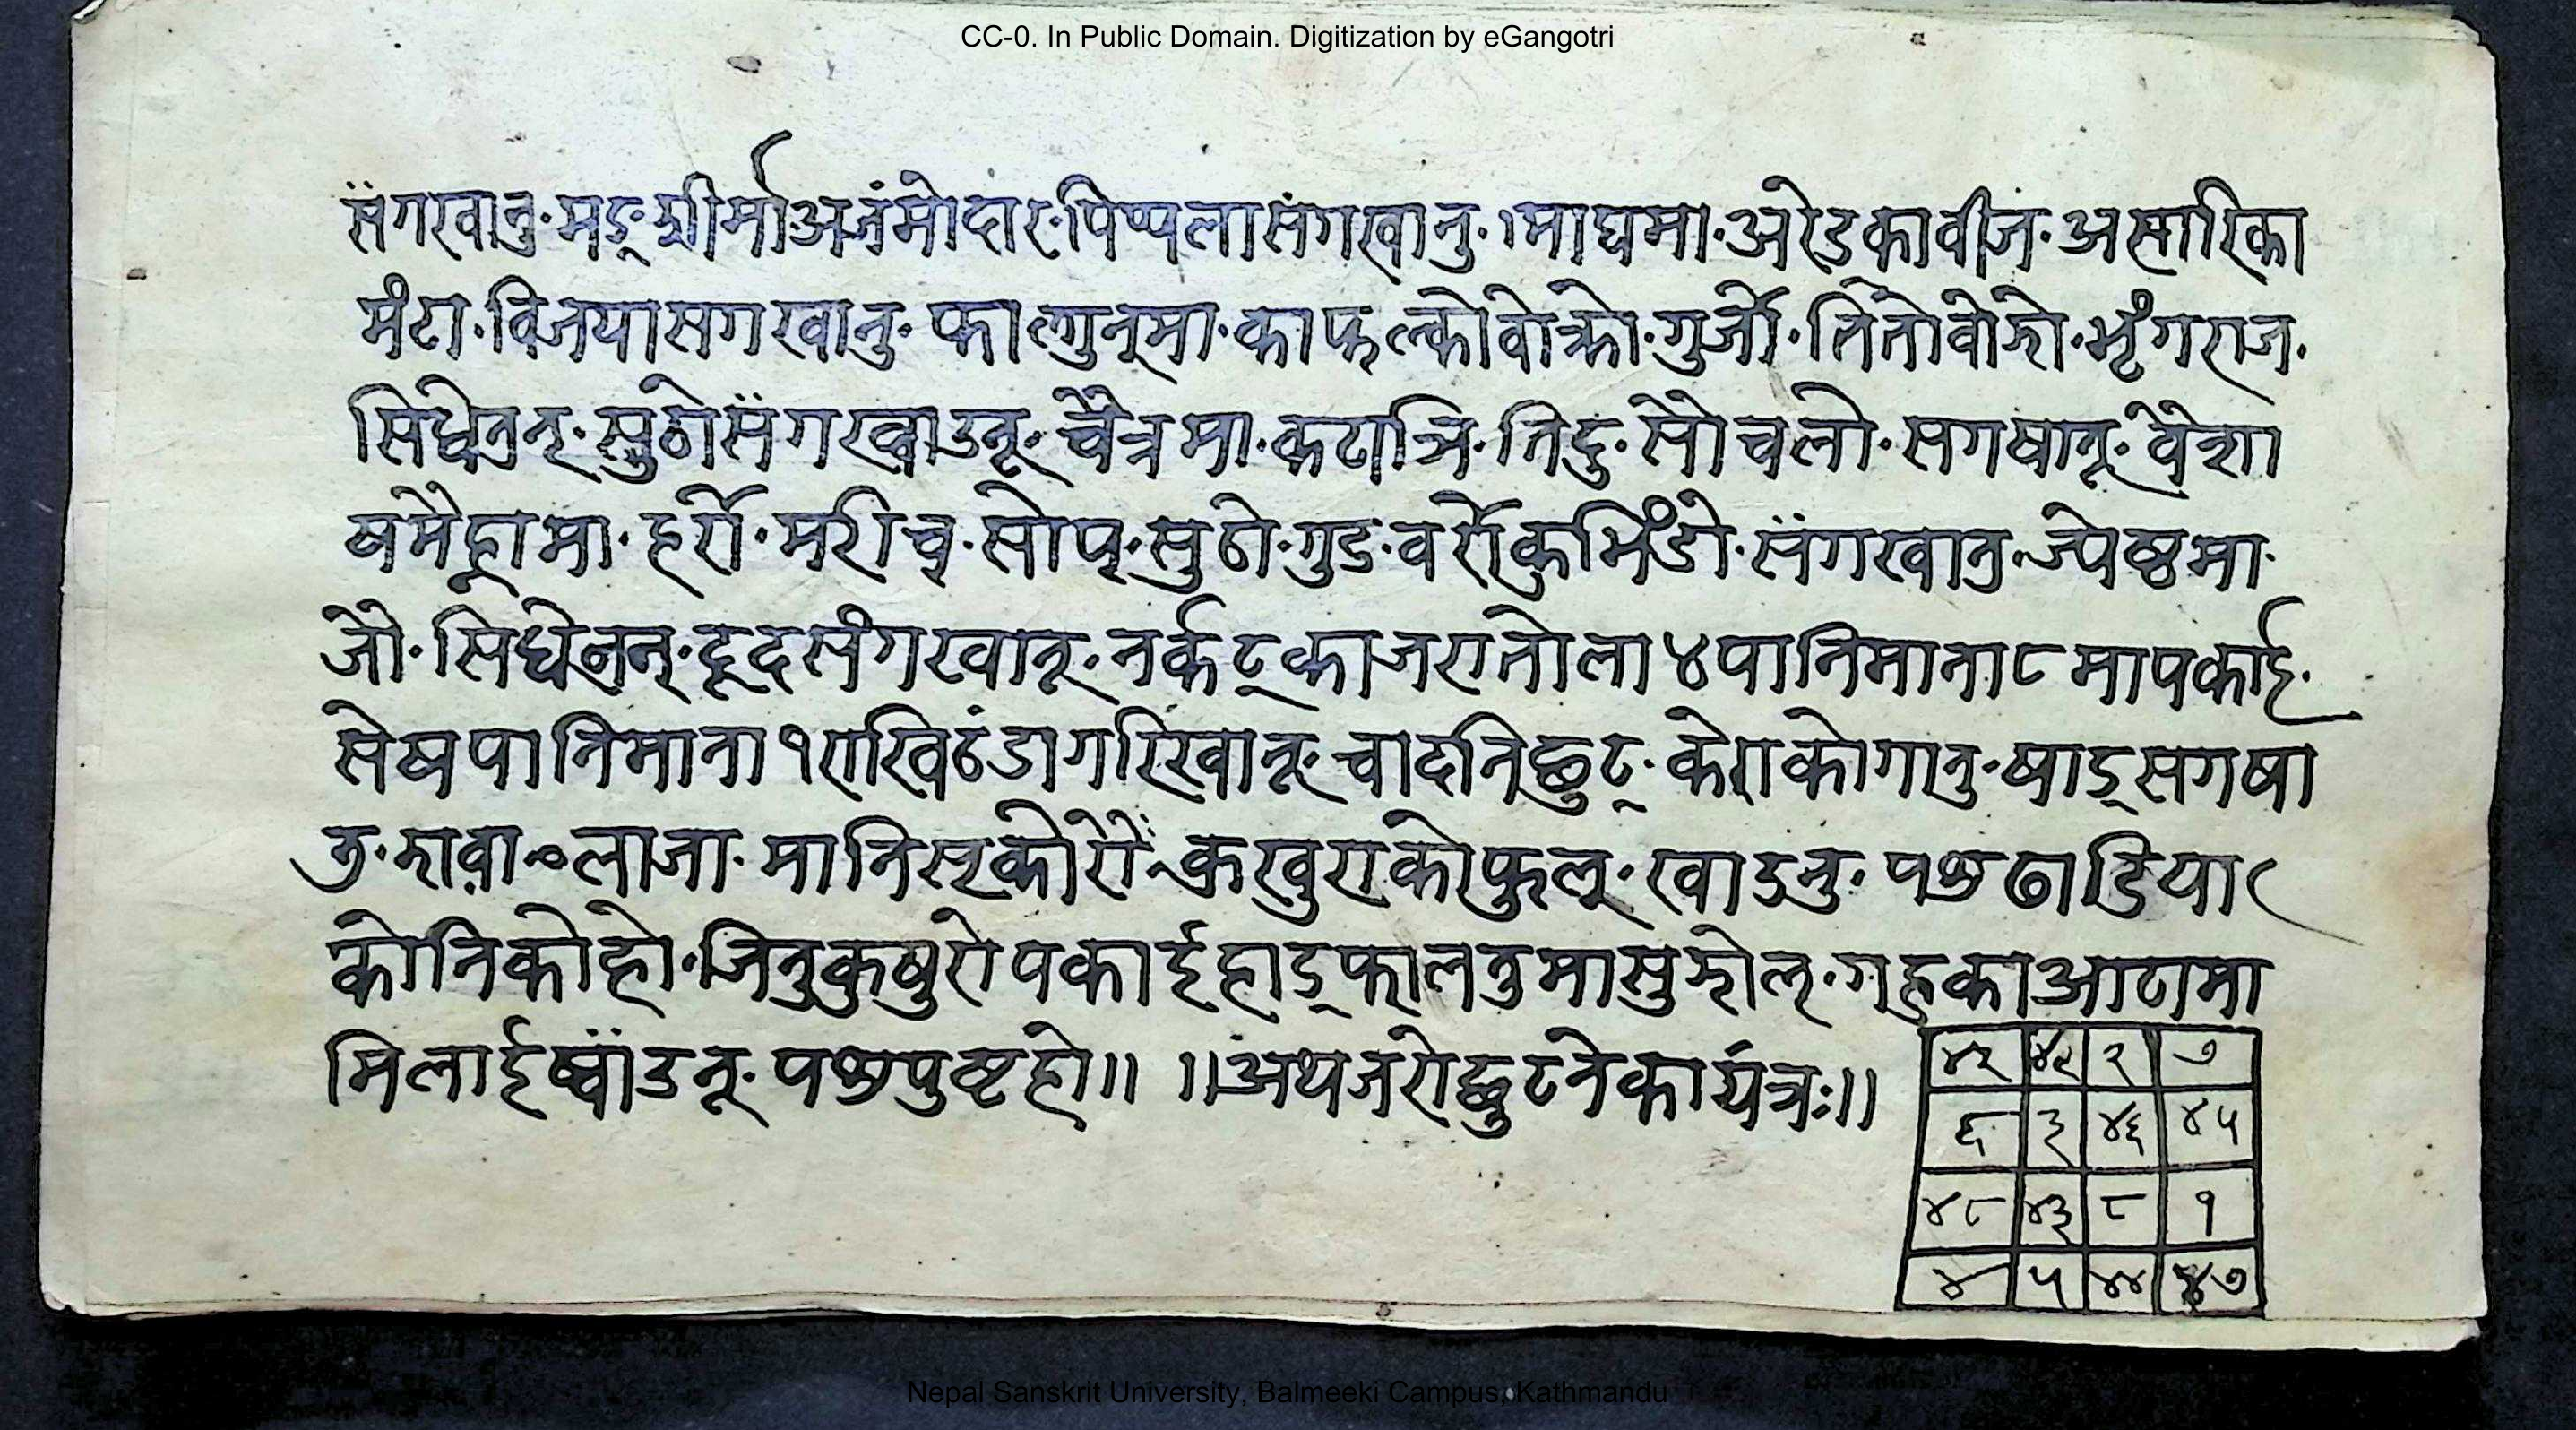 CC-0. In Public Domain. Digitization by eGangotri
सँगखानु॰ मङ्श्रीर्मा॰अजंमोदार॰पिप्पलासंगखानु॰।माघमा॰अरेडकावीज॰असारिका
मंटा॰विजयासगखानु॰ फाल्गुन्मा॰काफल्कोवोक्रो॰गुर्जो॰तितोवोझो॰भृंगराज॰
सिधेनुन्॰सुठोसँगख्वाउनू॰चैत्रमा॰कटाञि॰तिदु॰सोचलो॰सगषानू॰वैशा
षमैह्रामा॰हर्रो॰मरीच्॰सोप्॰सुठो॰गुड॰वर्रोकुभिंडो॰सँगखानु॰ज्येष्ठमा॰
जौ॰सिधेनुन्॰दूदसंगखानू॰नर्कट्काजरातोला ४ पानिमाना ८ मापकाई॰
सेषपानिमाना १ राखिठंडागरिखानू॰चादनिछुट्॰केराकोगानु॰षाड्सगषा
नु॰ लाजा॰मानिस्कोरौं॰ खुराकोफुल्॰ख्वाउनु॰पछाडिया
कोनिकोहो॰जिनुकुषुरोपकाईहाड्फालनुमासुझोल्॰गहुकाआटामा
मिलाईष्वाँउनू॰पछपुष्टहो॥ ॥अथजरोछुटनेकायंत्रः॥
४१ ४२ २ ७
६ ३ ४६ ४५
४८ ४३ ८ १
४ ५ ४४ ४७
Nepal Sanskrit University, Balmeeki Campus, Kathmandu